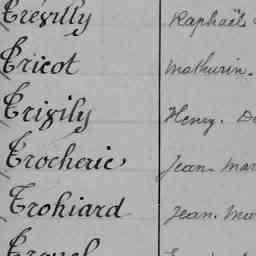 Trévilly Raphaël
Tricot Mathurin.
Trixily Henry.
Trocherie Jean. Mar
Trohiard Jean. Mar